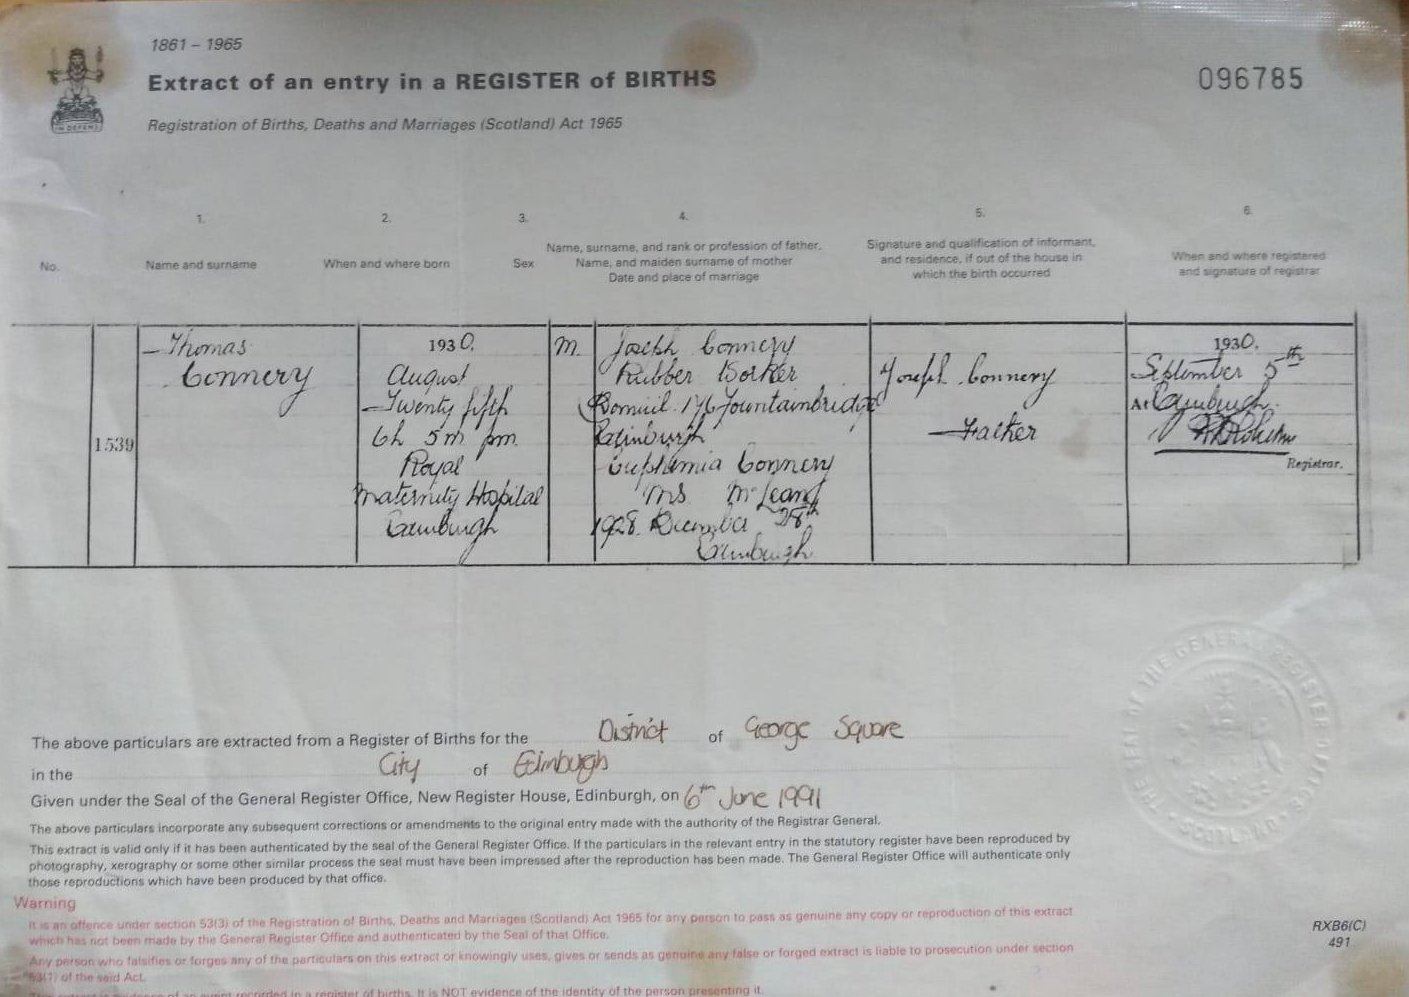 1861 – 1965
Extract of an entry in a REGISTER of BIRTHS
096785
Registration of Births, Deaths and Marriages (Scotland) Act 1965
IN DEFENS
No.
1.
Name and surname
2.
When and where born
3.
Sex
4.
Name, surname, and rank or profession of father.
Name, and maiden surname of mother
Date and place of marriage
5.
Signature and qualification of informant,
and residence, if out of the house in
which the birth occurred
6.
When and where registered
and signature of registrar
1539
Thomas
Connery
1930.
August
Twenty fifth
6h 5m pm
Royal
Maternity Hospital
Edinburgh
M.
Joseph Connery
Rubber Worker
176 Fountainbridge
Edinburgh
Euphemia Connery
ms McLean
1928. December 28th
Edinburgh
Joseph Connery
Father
1930.
September 5th
At Edinburgh.
Registrar.
The above particulars are extracted from a Register of Births for the District of George Square
in the City of Edinburgh
Given under the Seal of the General Register Office, New Register House, Edinburgh, on 6th June 1991
The above particulars incorporate any subsequent corrections or amendments to the original entry made with the authority of the Registrar General.
This extract is valid only if it has been authenticated by the seal of the General Register Office. If the particulars in the relevant entry in the statutory register have been reproduced by
photography, xerography or some other similar process the seal must have been impressed after the reproduction has been made. The General Register Office will authenticate only
those reproductions which have been produced by that office.
THE SEAL OF THE GENERAL REGISTER OFFICE SCOTLAND
Warning
It is an offence under section 53(3) of the Registration of Births, Deaths and Marriages (Scotland) Act 1965 for any person to pass as genuine any copy or reproduction of this extract
which has not been made by the General Register Office and authenticated by the Seal of that Office.
Any person who falsifies or forges any of the particulars on this extract or knowingly uses, gives or sends as genuine any false or forged extract is liable to prosecution under section
53(1) of the said Act.
This extract is evidence of an event recorded in a register of births. It is NOT evidence of the identity of the person presenting it.
RXB6(C)
491